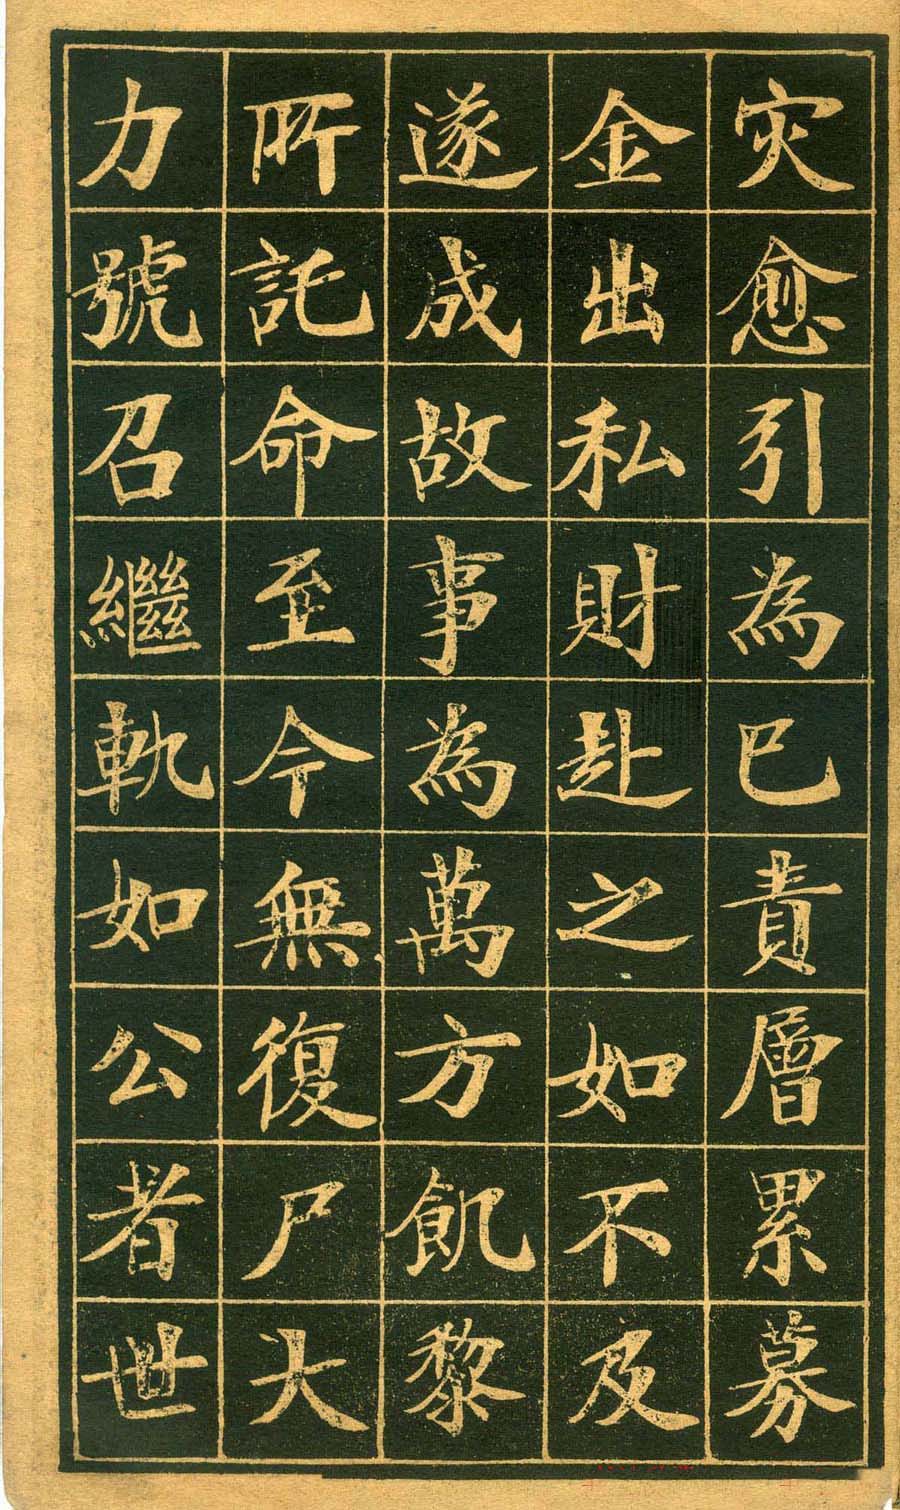 灾愈引為巳責層累募
金出私財赴之如不及
遂成故事為萬方飢黎
所託命至今無復尸大
力號召繼軌如公者世